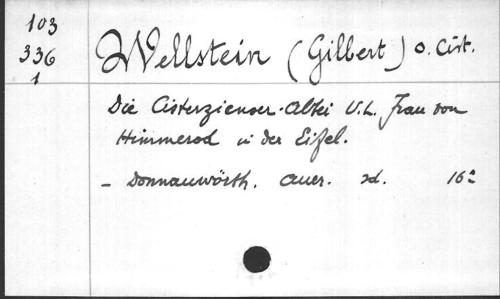 103
336
1
Wellstein (Gilbert) O. Cist.
Die Cisterzienser-Abtei U.L. Frau von
Himmerod in der Eifel.
- Donnauwörth. Auer. sd. 16°